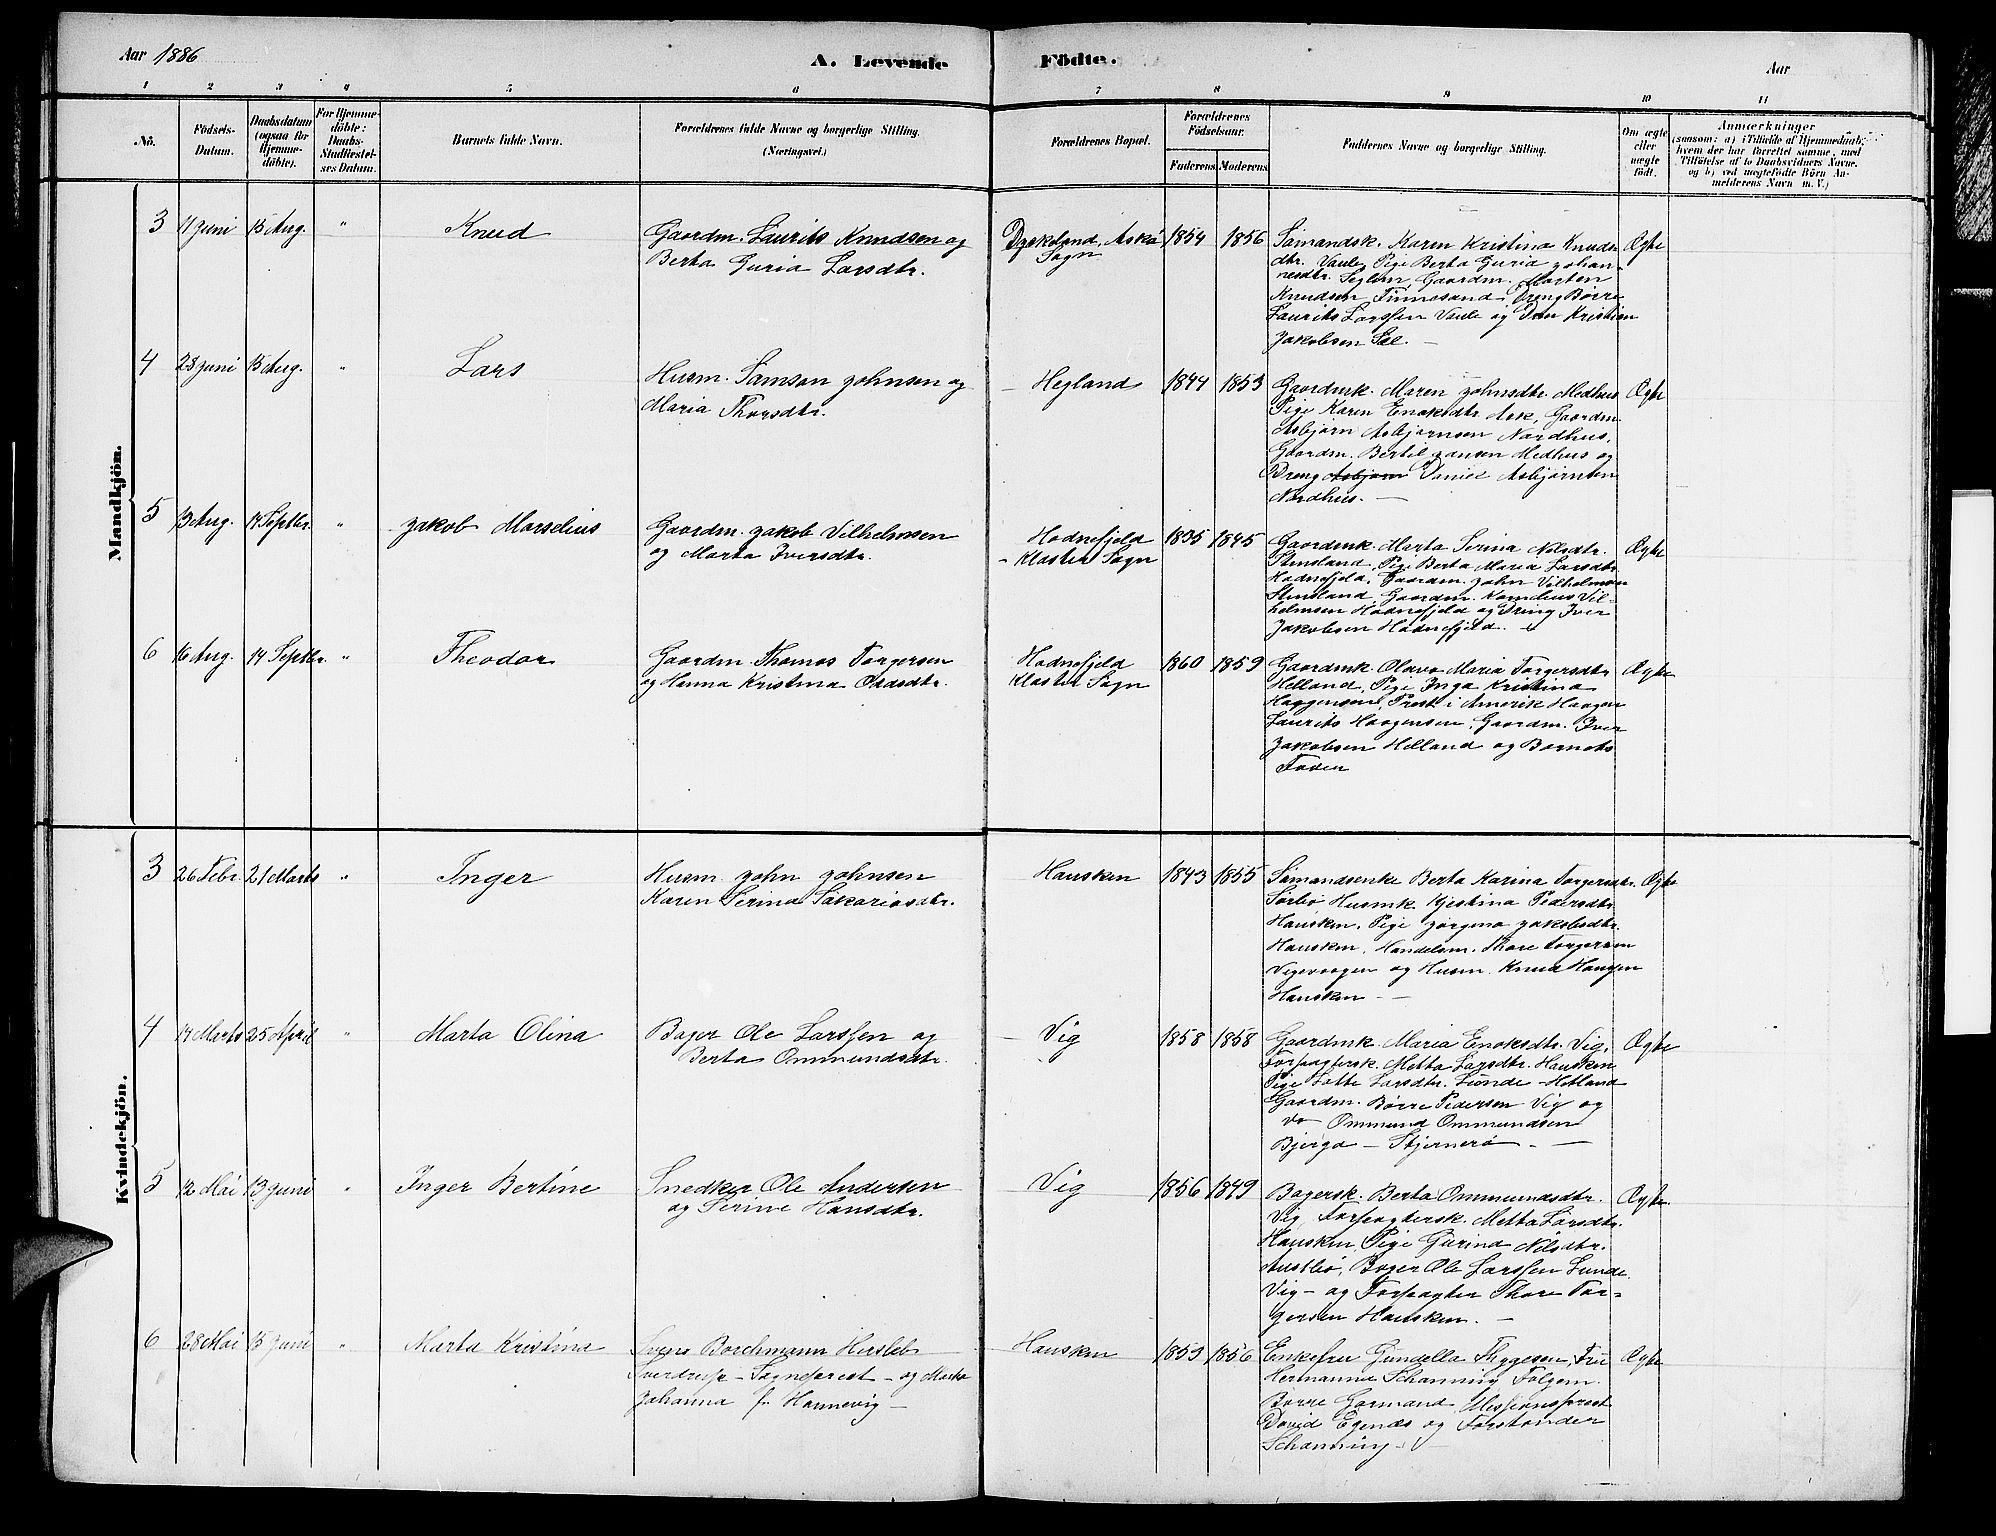 Aar 1886
A. Levende
Födte.
Aar
1 2 3 4 5 6 7 8 9 10 11
No.
Födsels-
Datum.
Daabsdatum
(ogsaa for
Hjemme-
döbte).
For Hjemme-
döbte:
Daabs-
Stadfæstel-
ses Datum.
Barnets fulde Navn.
Forældrenes fulde Navne og borgerlige Stilling.
(Næringsvei.)
Forældrenes Bopæl.
Forældrenes
Födselsaar.
Faderens Moderens
Faddernes Navne og borgerlige Stilling.
Om ægte
eller
uægte
födt.
Anmærkninger
(saasom: a) i Tilfælde af Hjemmedaab,
hvem der har forrettet samme, med
Tilföielse af to Daabsvidners Navne,
og b) ved uægtefödte Börn An-
melderens Navn m. V.)
Mandkjön.
3 11 Juni 15 Aug. " Knud
Gaardm. Laurits Knudsen og
Berta Guria Larsdtr.
Dysteland, Askø
Sogn
1854 1856
Sømandsk. Karen Kristina Knuds
dtr. Vaule, Pige Berta Guria Johan-
nesdtr. Seglem, Gaardm. Morten
Knudsen Finnesand, Dreng Børre
Laurits Larssen Vaule og Dr. Kristian
Jakobsen Sæl. —
Ægte
4 28 Juni 15 Aug. " Lars
Husm. Samson Johnsen og
Maria Thorsdtr.
– Hegland
1844 1853
Gaardmk. Maren Johnsdtr. Medhus
Pige Karen Enoksdtr. Ask, Gaardm.
Asbjørn Asbjørnsen Nordhus,
Gaardm. Bertil Hansen Medhus og
Dreng Asbjørn Daniel Asbjørnsen
Nordhus. —
Ægte
5 13 Aug. 14 Septbr. " Jakob Marselius
Gaardm. Jakob Vilhelmsen
og Marta Iversdtr.
Hodnefjeld
– Kloster Sogn
1835 1845
Gaardmk. Marta Serina Nilsdtr.
Stensland, Pige Berta Maria Larsdtr.
Hodnefjeld, Gaardm. John Vilhelmsen
Stensland, Gaardm. Kornelius Vil-
helmsen Hodnefjeld og Dreng Iver
Jakobsen Hodnefjeld. –
Ægte
6 16 Aug. 14 Septbr. " Theodor
Gaardm. Thomas Torgersen
og Hanna Kristina Olasdtr.
Hodnefjeld
Kloster Sogn
1860 1859
Gaardmk. Olava Maria Torgersdtr
Helland, Pige Inga Kristina
Haagensen, Prest i Amerik Haagen
Laurits Haagensen, Gaardm. Iver
Jakobsen Helland og Barnets
Fader
Ægte
Kvindekjön.
3 26 Febr. 21 Marts " Inger
Husm. John Johnsen
Karen Serina Sakariasdtr.
Hausken
1843 1855
Sømandsenke Berta Karina Torgersdtr.
Sørbø Husmk. Kjestina Pedersdtr.
Hausken, Pige Jørgina Jakobsdtr.
Hausken, Handelsm. Thore Torgersen
Vigevaagen og Husm. Knud Haugen
Hausken – –
Ægte
4 14 Marts 25 April " Marta Olina
Bager Ole Larssen og
Berta Ommundsdtr.
– Vig
1858 1858
Gaardmk. Maria Enoksdtr. Vig,
Forpagtersk. Metta Larsdtr. Hausken
Pige Lotte Larsdtr. Lunde – Hetland
Gaardm. Børre Pedersen Vig og
do Ommund Ommundsen
Bjerga – Stjernerø – —
Ægte
5 12 Mai 13 Juni " Inger Bertine
Snedker Ole Andersen
og Serine Hansdtr.
– Vig
1856 1849
Bagersk. Berta Ommundsdtr.
Vig, Forpagtersk. Metta Larsdtr.
Hausken, Pige Gurina Nilsdtr.
Austbø, Bager Ole Larssen Lunde
Vig – og Forpagter Thore Tor-
gersen Hausken. –
Ægte
6 28 Mai 13 Juni " Marta Kristina
Svens Borchmann Hersleb
Sverdrup – Sogneprest – og Marta
Johanna f. Hannevig –
Hausken
1853 1856
Enkefru Gundella Thygesen, Fru
Hermanna Schanning Følgem.
Børre Garmand, Missionsprest
David Egenæs og Forstander
Schanning –
Ægte